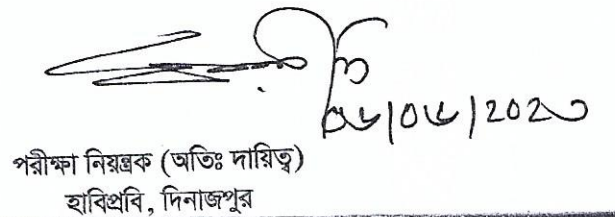 ০৬/০৬/২০২৩
পরীক্ষা নিয়ন্ত্রক (অতিঃ দায়িত্ব)
হাবিপ্রবি, দিনাজপুর